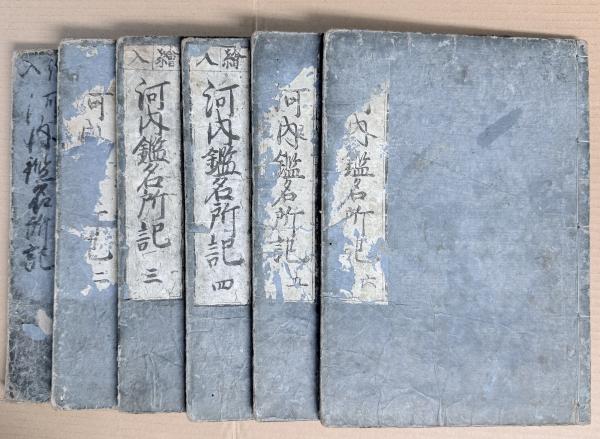 入 河内鑑名所記
河内 記 二
繪入 河内鑑名所記 三
繪入 河内鑑名所記 四
河内鑑名所記 五
内鑑名所記 六